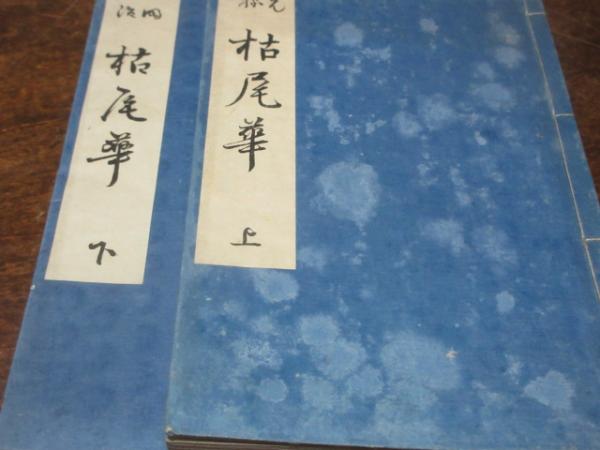 元禄
枯尾華
上
枯尾華
下